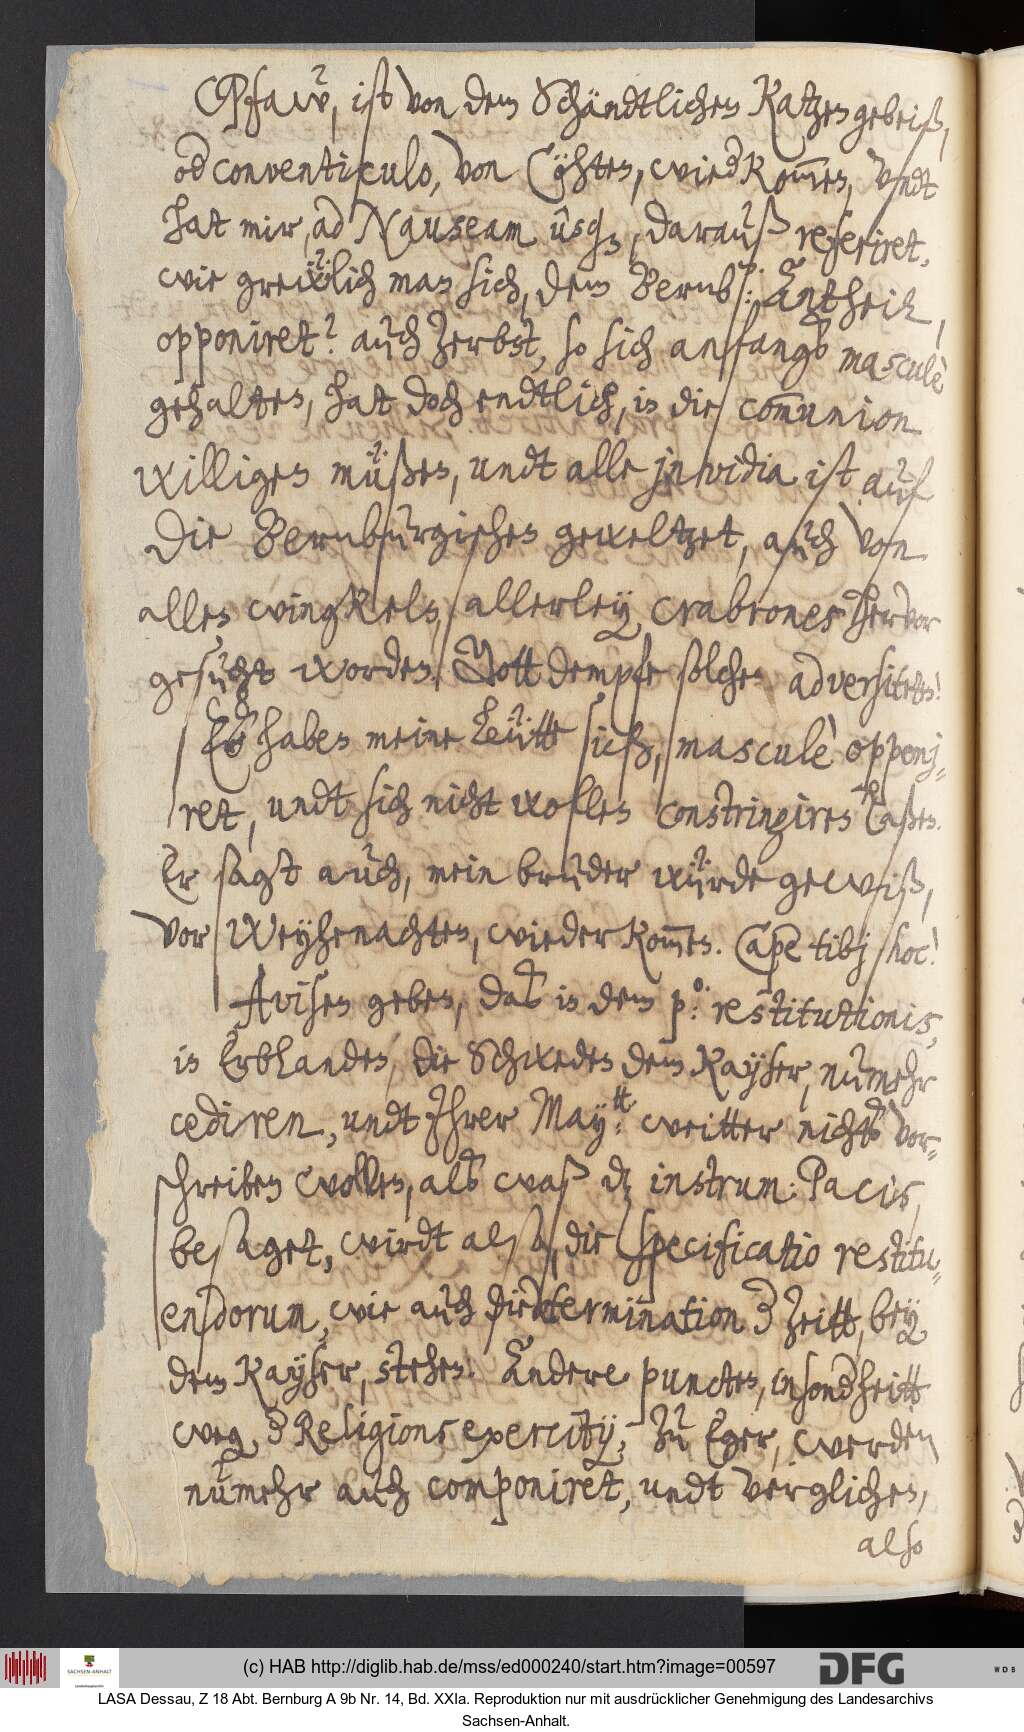 Pfaw, ist von dem Schändtlichen Katzengebeiß,
od conventiculo, von Cöhten, wied kom̄en, undt
hat mir, ad Nauseam usq3, darauß referiret,
wie grewlich man sich, dem Bernb: Antheil,
opponiret? auch Zerbst, so sich anfangs masculè
gehalten, hat doch endtlich, in die com̄union
willigen müßen, undt alle jnvidia ist auf
die Bernburgischen geweltzet, auch von
allen wingkeln, allerley crabrones hervor
gesucht worden. Gott dempfe solche adversiteten!
Eß haben meine Leütt sich, masculè opponi¬
ret, undt sich nicht wollen constringiren laßen.
Er sagt auch, mein bruder würde gewiß,
vor Weyhenachten, wieder kom̄en. Cape tibj hoc!
Avisen geben, daß in dem p:o restitutionis,
in Erblanden, die Schweden dem Kayser, numehr
cediren, undt Ihrer May:tt weitter nichts vor¬
schreiben wollen, alß waß dz instrum: Pacis,
besaget, wirdt also, die specificatio restitu¬
endorum, wie auch die determination d Zeitt, bey
dem Kayser, stehen. Andere puncten, insondheitt
weg. d Religions exercitij, zu Eger, werden
numehr auch componiret, undt verglichen,
also
(c) HAB http://diglib.hab.de/mss/ed000240/start.htm?image=00597
SACHSEN-ANHALT
DFG
WDB
LASA Dessau, Z 18 Abt. Bernburg A 9b Nr. 14, Bd. XXIa. Reproduktion nur mit ausdrücklicher Genehmigung des Landesarchivs
Sachsen-Anhalt.